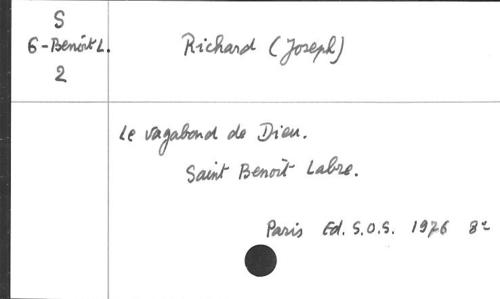 S
6-Benoît L.
2
Richard (Joseph)
Le vagabond de Dieu.
Saint Benoît Labre.
Paris Ed. S.O.S. 1976 8°